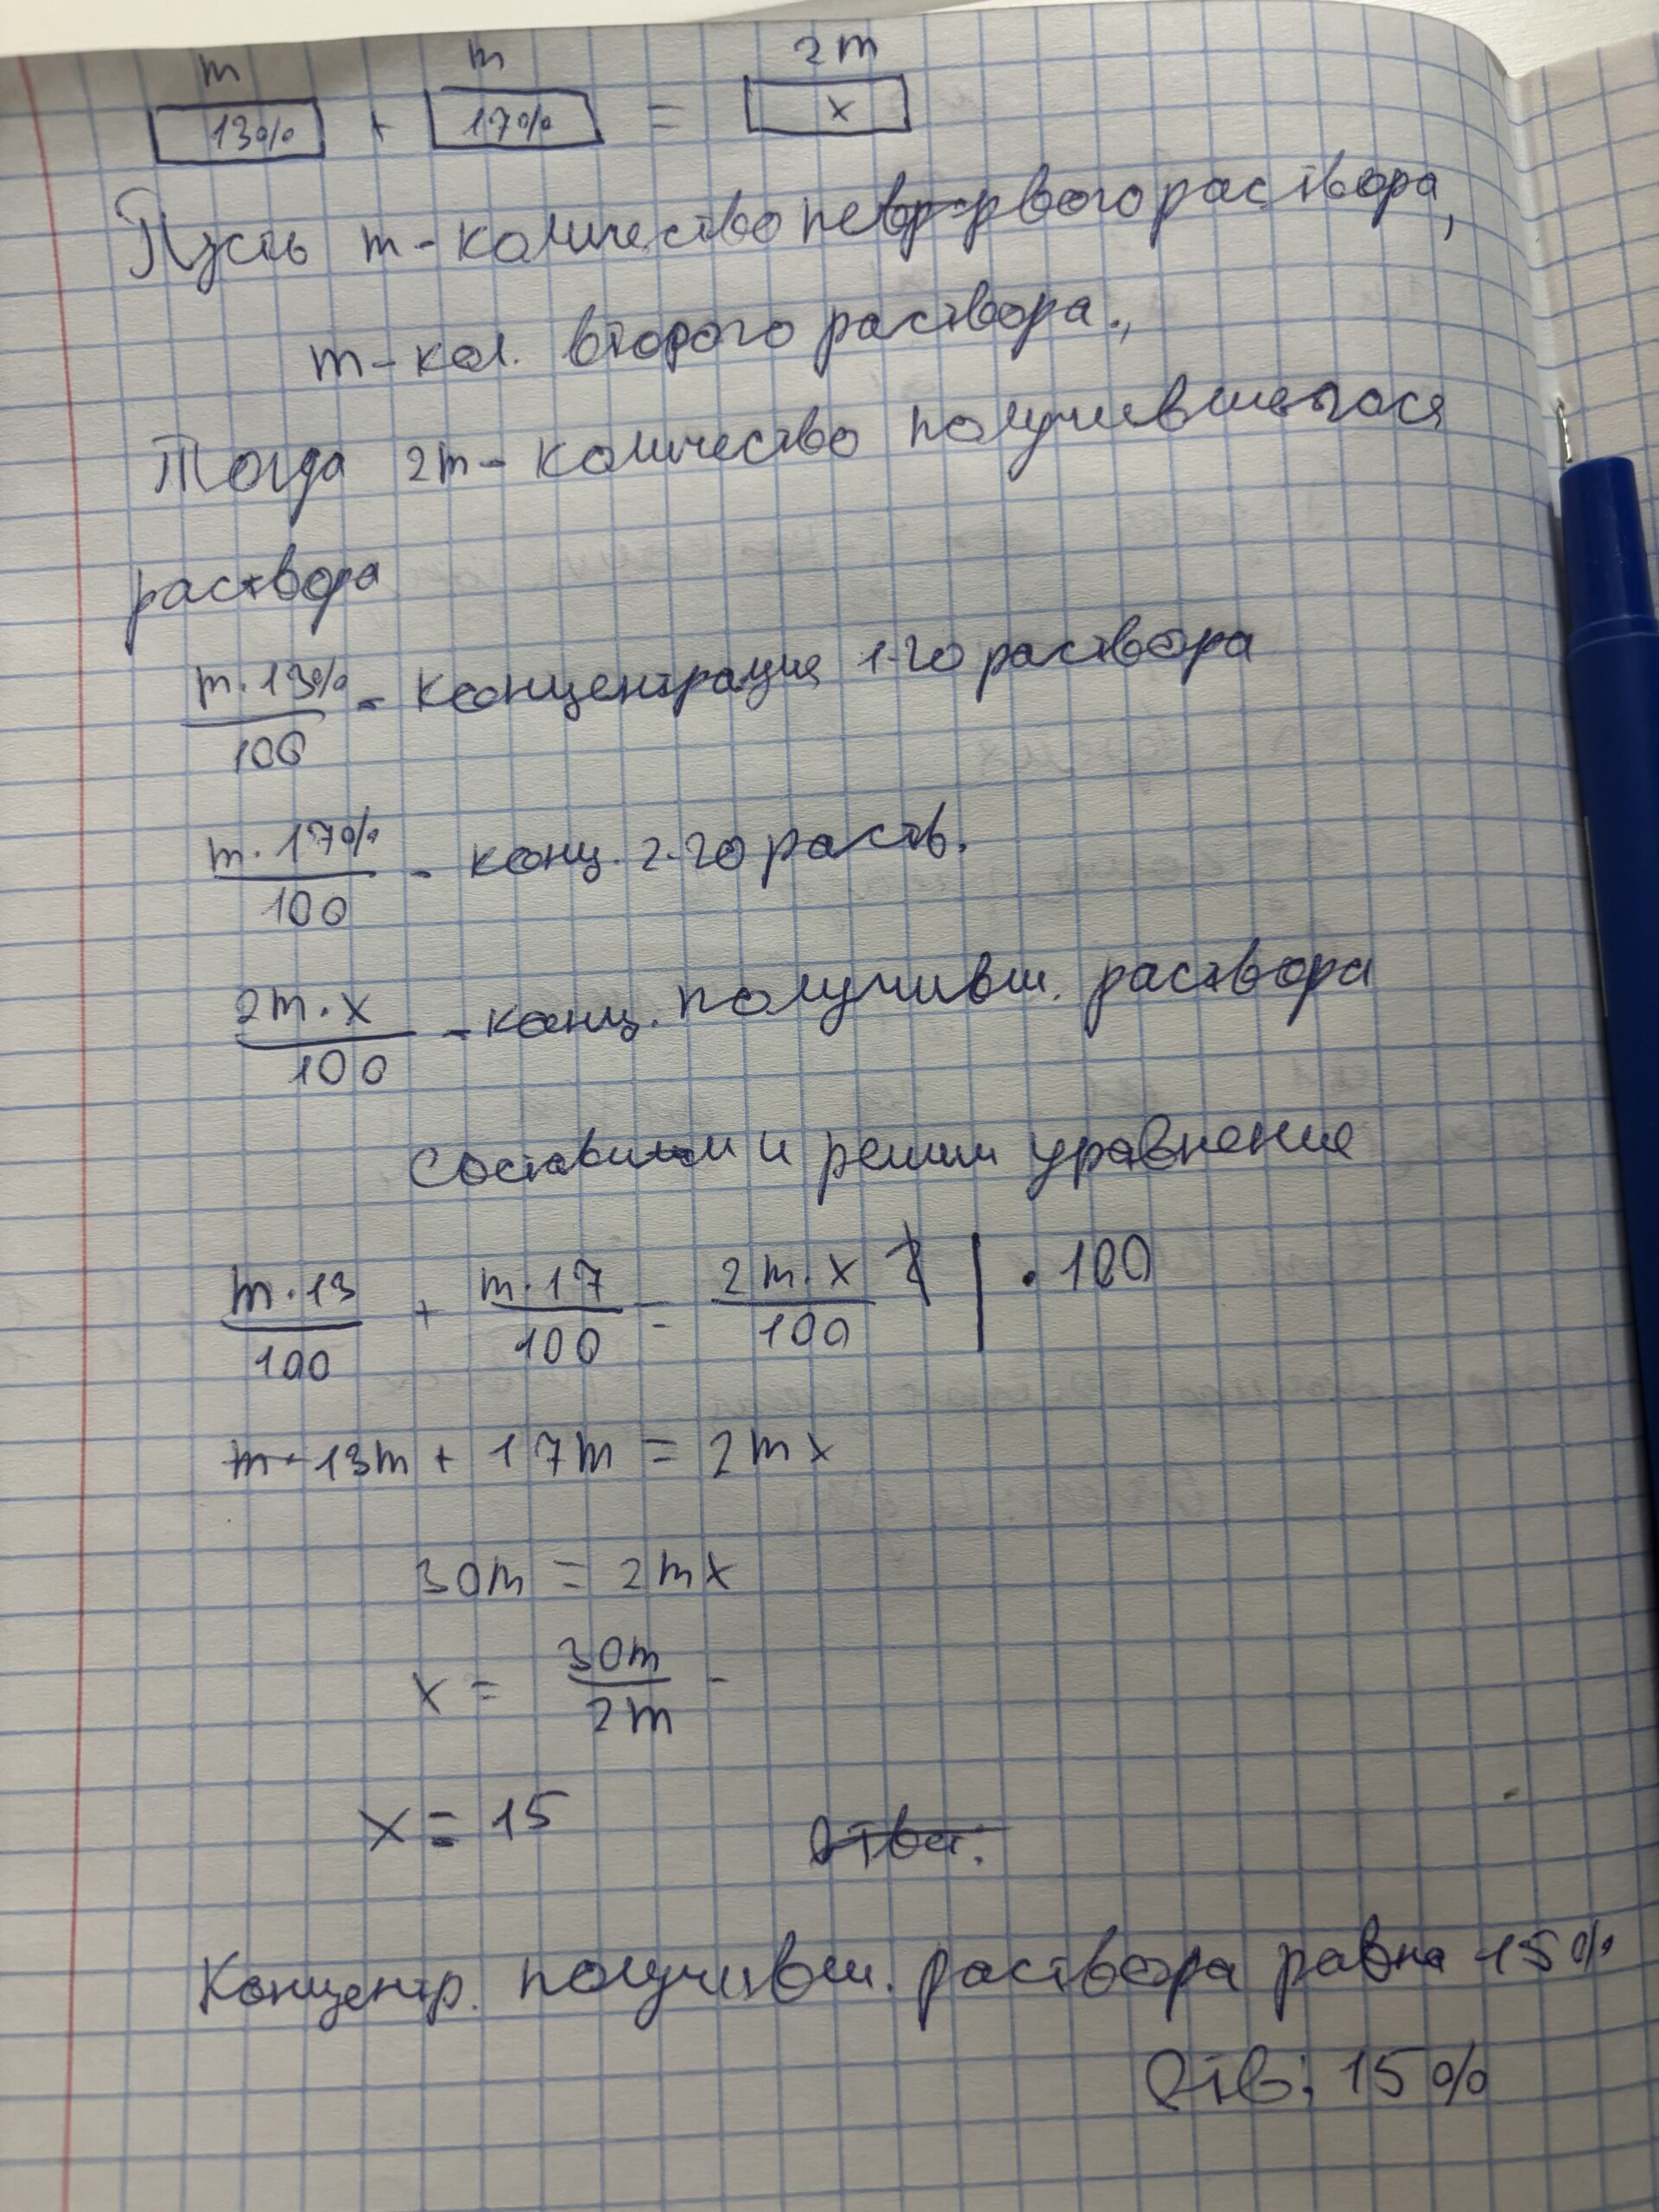 m m 2m
13% + 17% = x
Пусть m - количество первого раствора,
m - кол. второго раствора.,
Тогда 2m - количество получившегося
раствора
m·13%/100 - концентрация 1-го раствора
m·17%/100 - конц. 2-го раств.
2m·x/100 - конц. получивш. раствора
Составим и решим уравнение
m·13/100 + m·17/100 = 2m·x/100 | ·100
13m + 17m = 2mx
30m = 2mx
x = 30m/2m -
x = 15 Ответ:
Концентр. получивш. раствора равна 15%
Отв: 15%